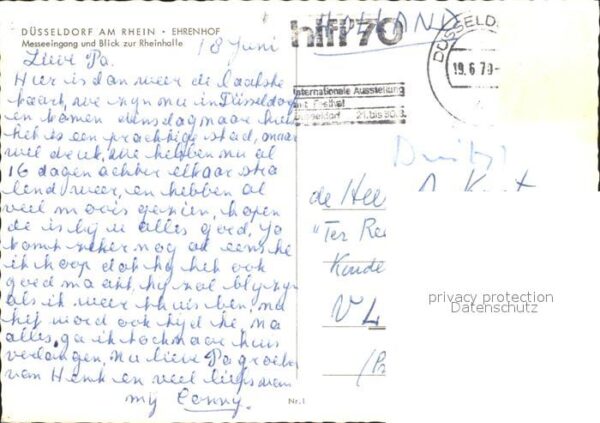 DÜSSELDORF AM RHEIN · EHRENHOF
Messeeingang und Blick zur Rheinhalle
18 Juni
Lieve Pa.
Hier is dan weer de laatste
kaart, we zyn nu in Düsseldorf
en komen dinsdag naar huis
het is een prachtige stad, maar
wel druk, we hebben nu al
16 dagen achter elkaar stra
lend weer, en hebben al
veel moois gezien, hopen
de is bij u alles goed, Jo
komt zeker nog al eens he
ik hoop dat hy het ook
goed maakt, hy zal bly zyn
als ik weer thuis ben, na
hij word ook tyd he, na
alles ga ik toch naar huis
verlangen, nu lieve Pa groeten
van Henk en veel liefs van
my Conny.
HOLLAND
hifi 70
Internationale Ausstellung
mit Festival
Düsseldorf 21. bis 30.8.
DÜSSELD
19.6.70
de Hee
"Ter Re
Kinde
VL
privacy protection
Datenschutz
Nr. 1